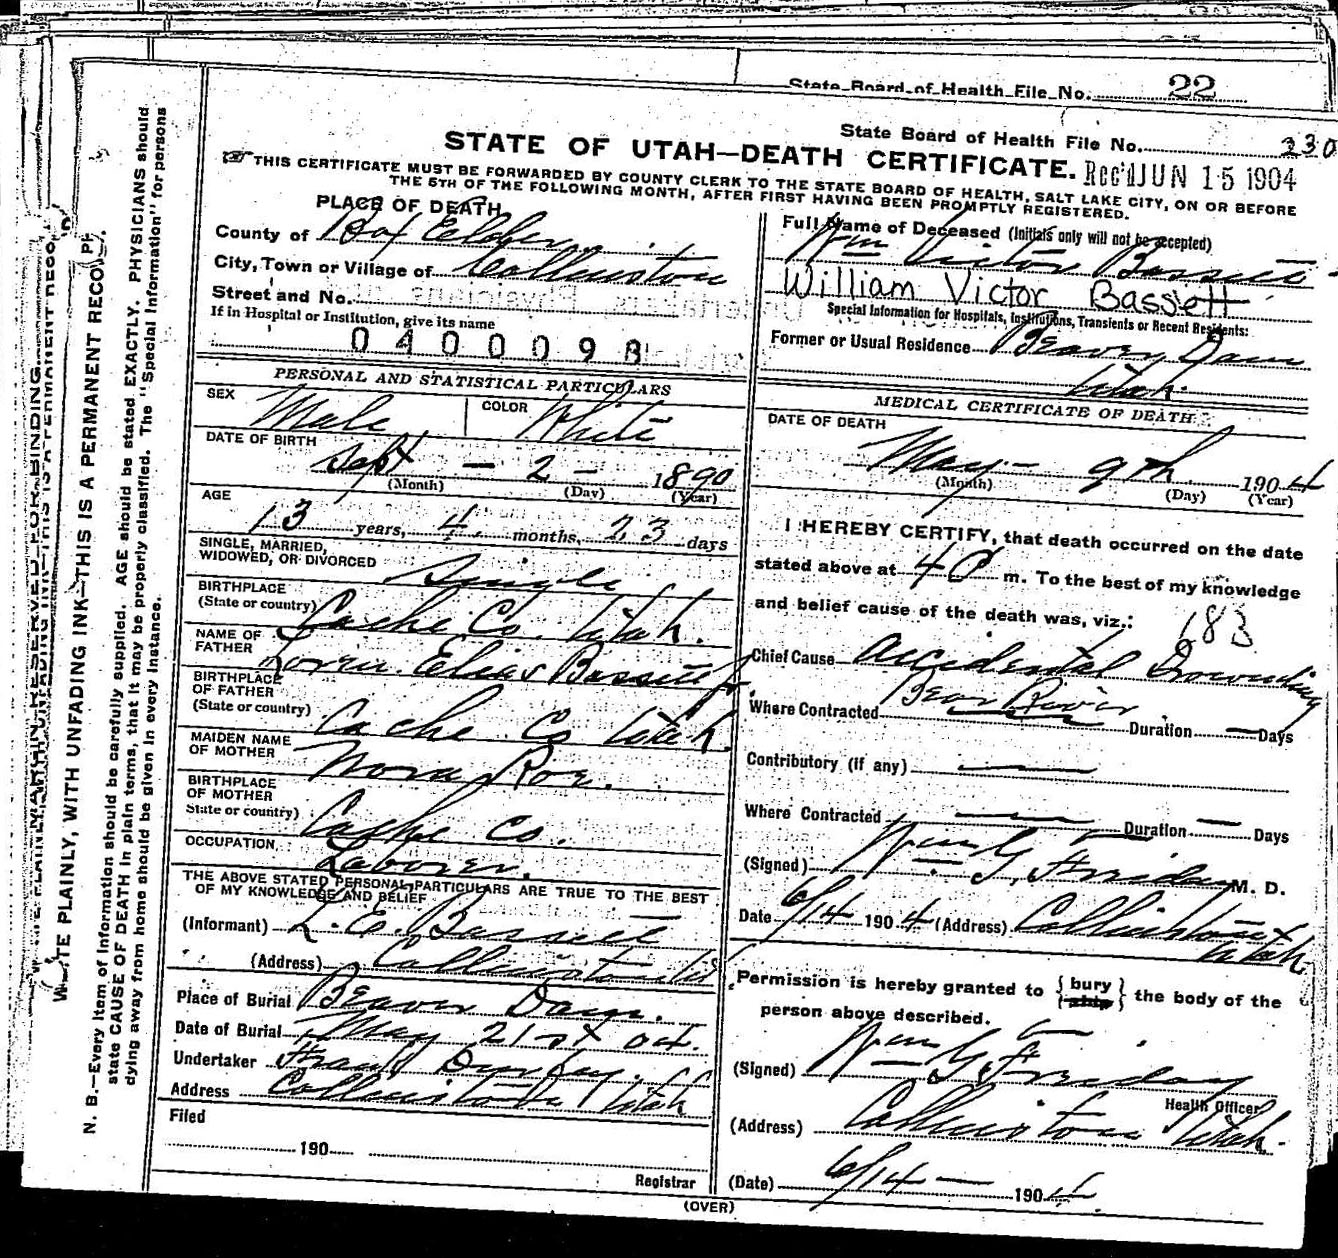 State Board of Health File No. 22
State Board of Health File No. 230
STATE OF UTAH—DEATH CERTIFICATE.
Rec'd JUN 15 1904
THIS CERTIFICATE MUST BE FORWARDED BY COUNTY CLERK TO THE STATE BOARD OF HEALTH, SALT LAKE CITY, ON OR BEFORE
THE 5TH OF THE FOLLOWING MONTH, AFTER FIRST HAVING BEEN PROMPTLY REGISTERED.
PLACE OF DEATH
County of Box Elder
City, Town or Village of Collinston
Street and No.
If in Hospital or Institution, give its name
0400098
PERSONAL AND STATISTICAL PARTICULARS
SEX Male COLOR White
DATE OF BIRTH
Sept - 2 - 1890
(Month) (Day) (Year)
AGE
13 years, 4 months, 23 days
SINGLE, MARRIED,
WIDOWED, OR DIVORCED Single
BIRTHPLACE
(State or country) Cache Co. Utah.
NAME OF
FATHER Lorin Elias Bassett Jr
BIRTHPLACE
OF FATHER
(State or country) Cache Co Utah
MAIDEN NAME
OF MOTHER Nora Roe.
BIRTHPLACE
OF MOTHER
State or country) Cache Co.
OCCUPATION Laborer.
THE ABOVE STATED PERSONAL PARTICULARS ARE TRUE TO THE BEST
OF MY KNOWLEDGE AND BELIEF
(Informant) L. E. Bassett
(Address) Collinston Ut
Place of Burial Beaver Dam.
Date of Burial May 21st 04.
Undertaker Frank
Address Collinston Utah
Filed
190
Registrar
Full Name of Deceased (Initials only will not be accepted)
Wm Victor Bassett
William Victor Bassett
Special Information for Hospitals, Institutions, Transients or Recent Residents:
Former or Usual Residence Beaver Dam
Utah.
MEDICAL CERTIFICATE OF DEATH
DATE OF DEATH
May - 9th 1904
(Month) (Day) (Year)
I HEREBY CERTIFY, that death occurred on the date
stated above at 4 P m. To the best of my knowledge
and belief cause of the death was, viz.:
683
Chief Cause Accidental Drowning
Where Contracted Bear River Duration — Days
Contributory (if any) —
Where Contracted — Duration — Days
(Signed) Wm G. Friday M. D.
Date 6/14 1904 (Address) Collinston
Utah
Permission is hereby granted to { bury ship } the body of the
person above described.
(Signed) Wm G Friday
Health Officer
(Address) Collinston Utah.
(Date) 6/14 - 1904.
(OVER)
WRITE PLAINLY, WITH UNFADING INK—THIS IS A PERMANENT RECORD.
N. B.—Every item of information should be carefully supplied. AGE should be stated EXACTLY. PHYSICIANS should
state CAUSE OF DEATH in plain terms, that it may be properly classified. The "Special Information" for persons
dying away from home should be given in every instance.